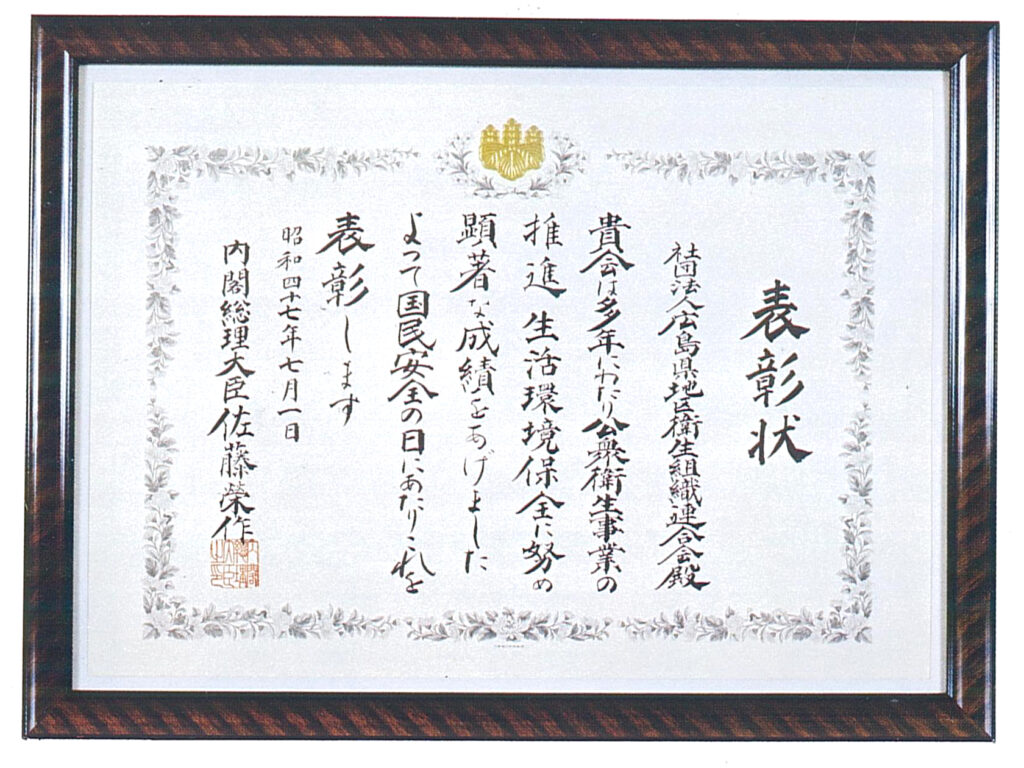 表彰状
社団法人広島県地区衛生組織連合会殿
貴会は多年にわたり公衆衛生事業の
推進生活環境保全に努め
顕著な成績をあげました
よって国民安全の日にあたりこれを
表彰します
昭和四十七年七月一日
内閣総理大臣佐藤榮作